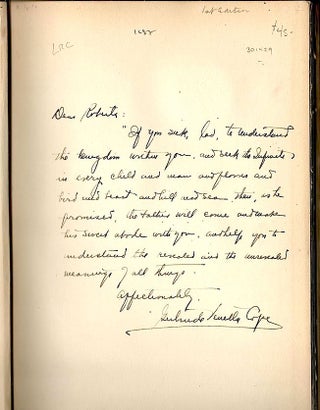 1st Edition
LRC
Dear Roberts:
"If you seek, lad, to understand
the kingdom within you, and seek the Infinite
in every child and man and flower and
bird and beast and hill and sea, then, as he
promised, the Father will come and make
his sweet abode with you, and help you to
understand the revealed and the unrevealed
meanings of all things.
affectionately.
Gertrude Cope